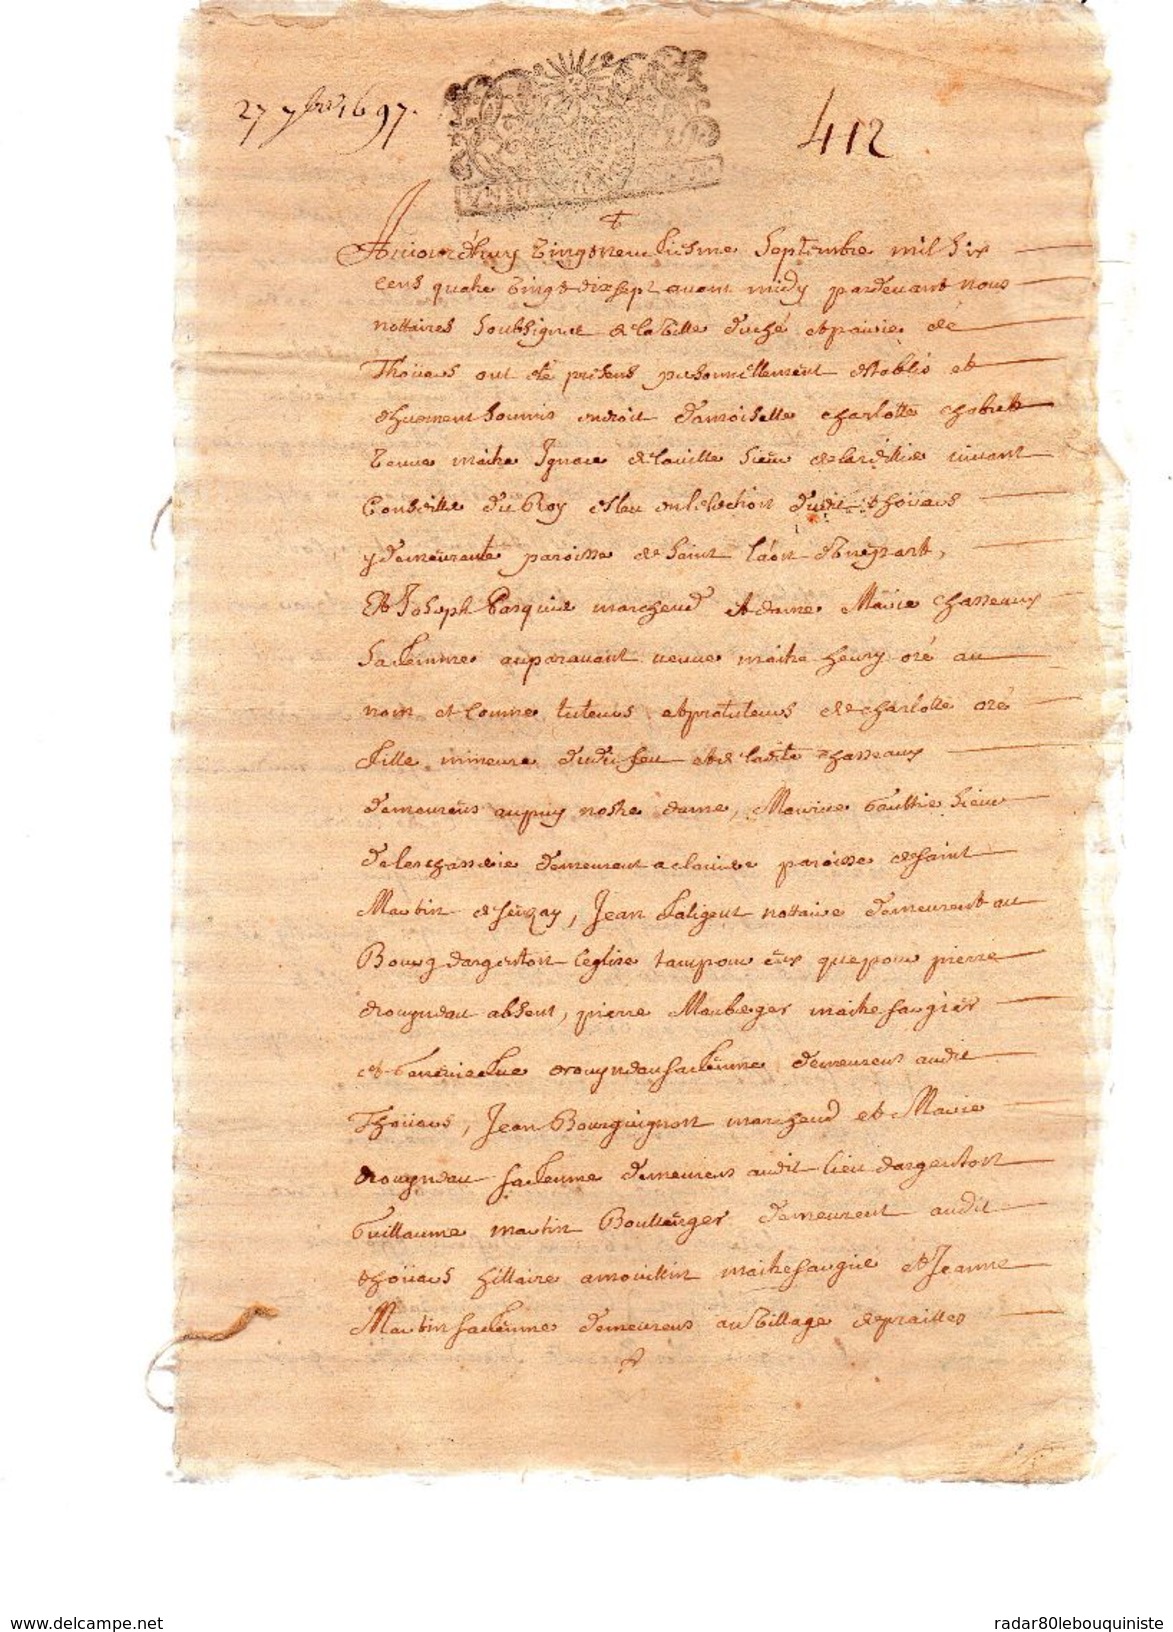 27 7bre 1697.
412
Aujourdhuy vingtneufiesme Septembre mil six
cens quatre vingt dix sept avant midy pardevant nous
nottaires soubsignes de la ville duché et pairie de
Thoüars ont esté presens personnellement establis et
dhuement soumis endroit damoiselle charlotte chabert
veuve maitre Ignace delaville sieur vivant
Conseille du Roy esleu en leslection dudit thoüars
y demeurante paroisse de saint laon d'unepart,
Et Joseph Pasquie marchend & dame Marie chasseaux
sa femme auparavant veuve maitre henry oré au
nom et comme tuteurs et protuteurs de charlotte oré
fille mineure dudit feu et de ladite chasseaux
demeurens au puy nostre dame, Maurice Gaultie sieur
demeurent a paroisse de saint
Martin de senzay, Jean faligent nottaire demeurent au
Bourg dargenton leglise tampour eux que pour pierre
drouyndau absent, pierre Mauberger maitre sargier
et drouyndau sa femme demeurens audit
Thoüars, Jean Bourguignon marchend et Marie
drouyndau sa femme demeurens audit lieu dargenton
Guillaume martin Boullenger demeurent audit
thoüars hillaire amouillin maitre sargie et Jeanne
Martin sa femme demeurens au village de prailles
www.delcampe.net
radar80lebouquiniste